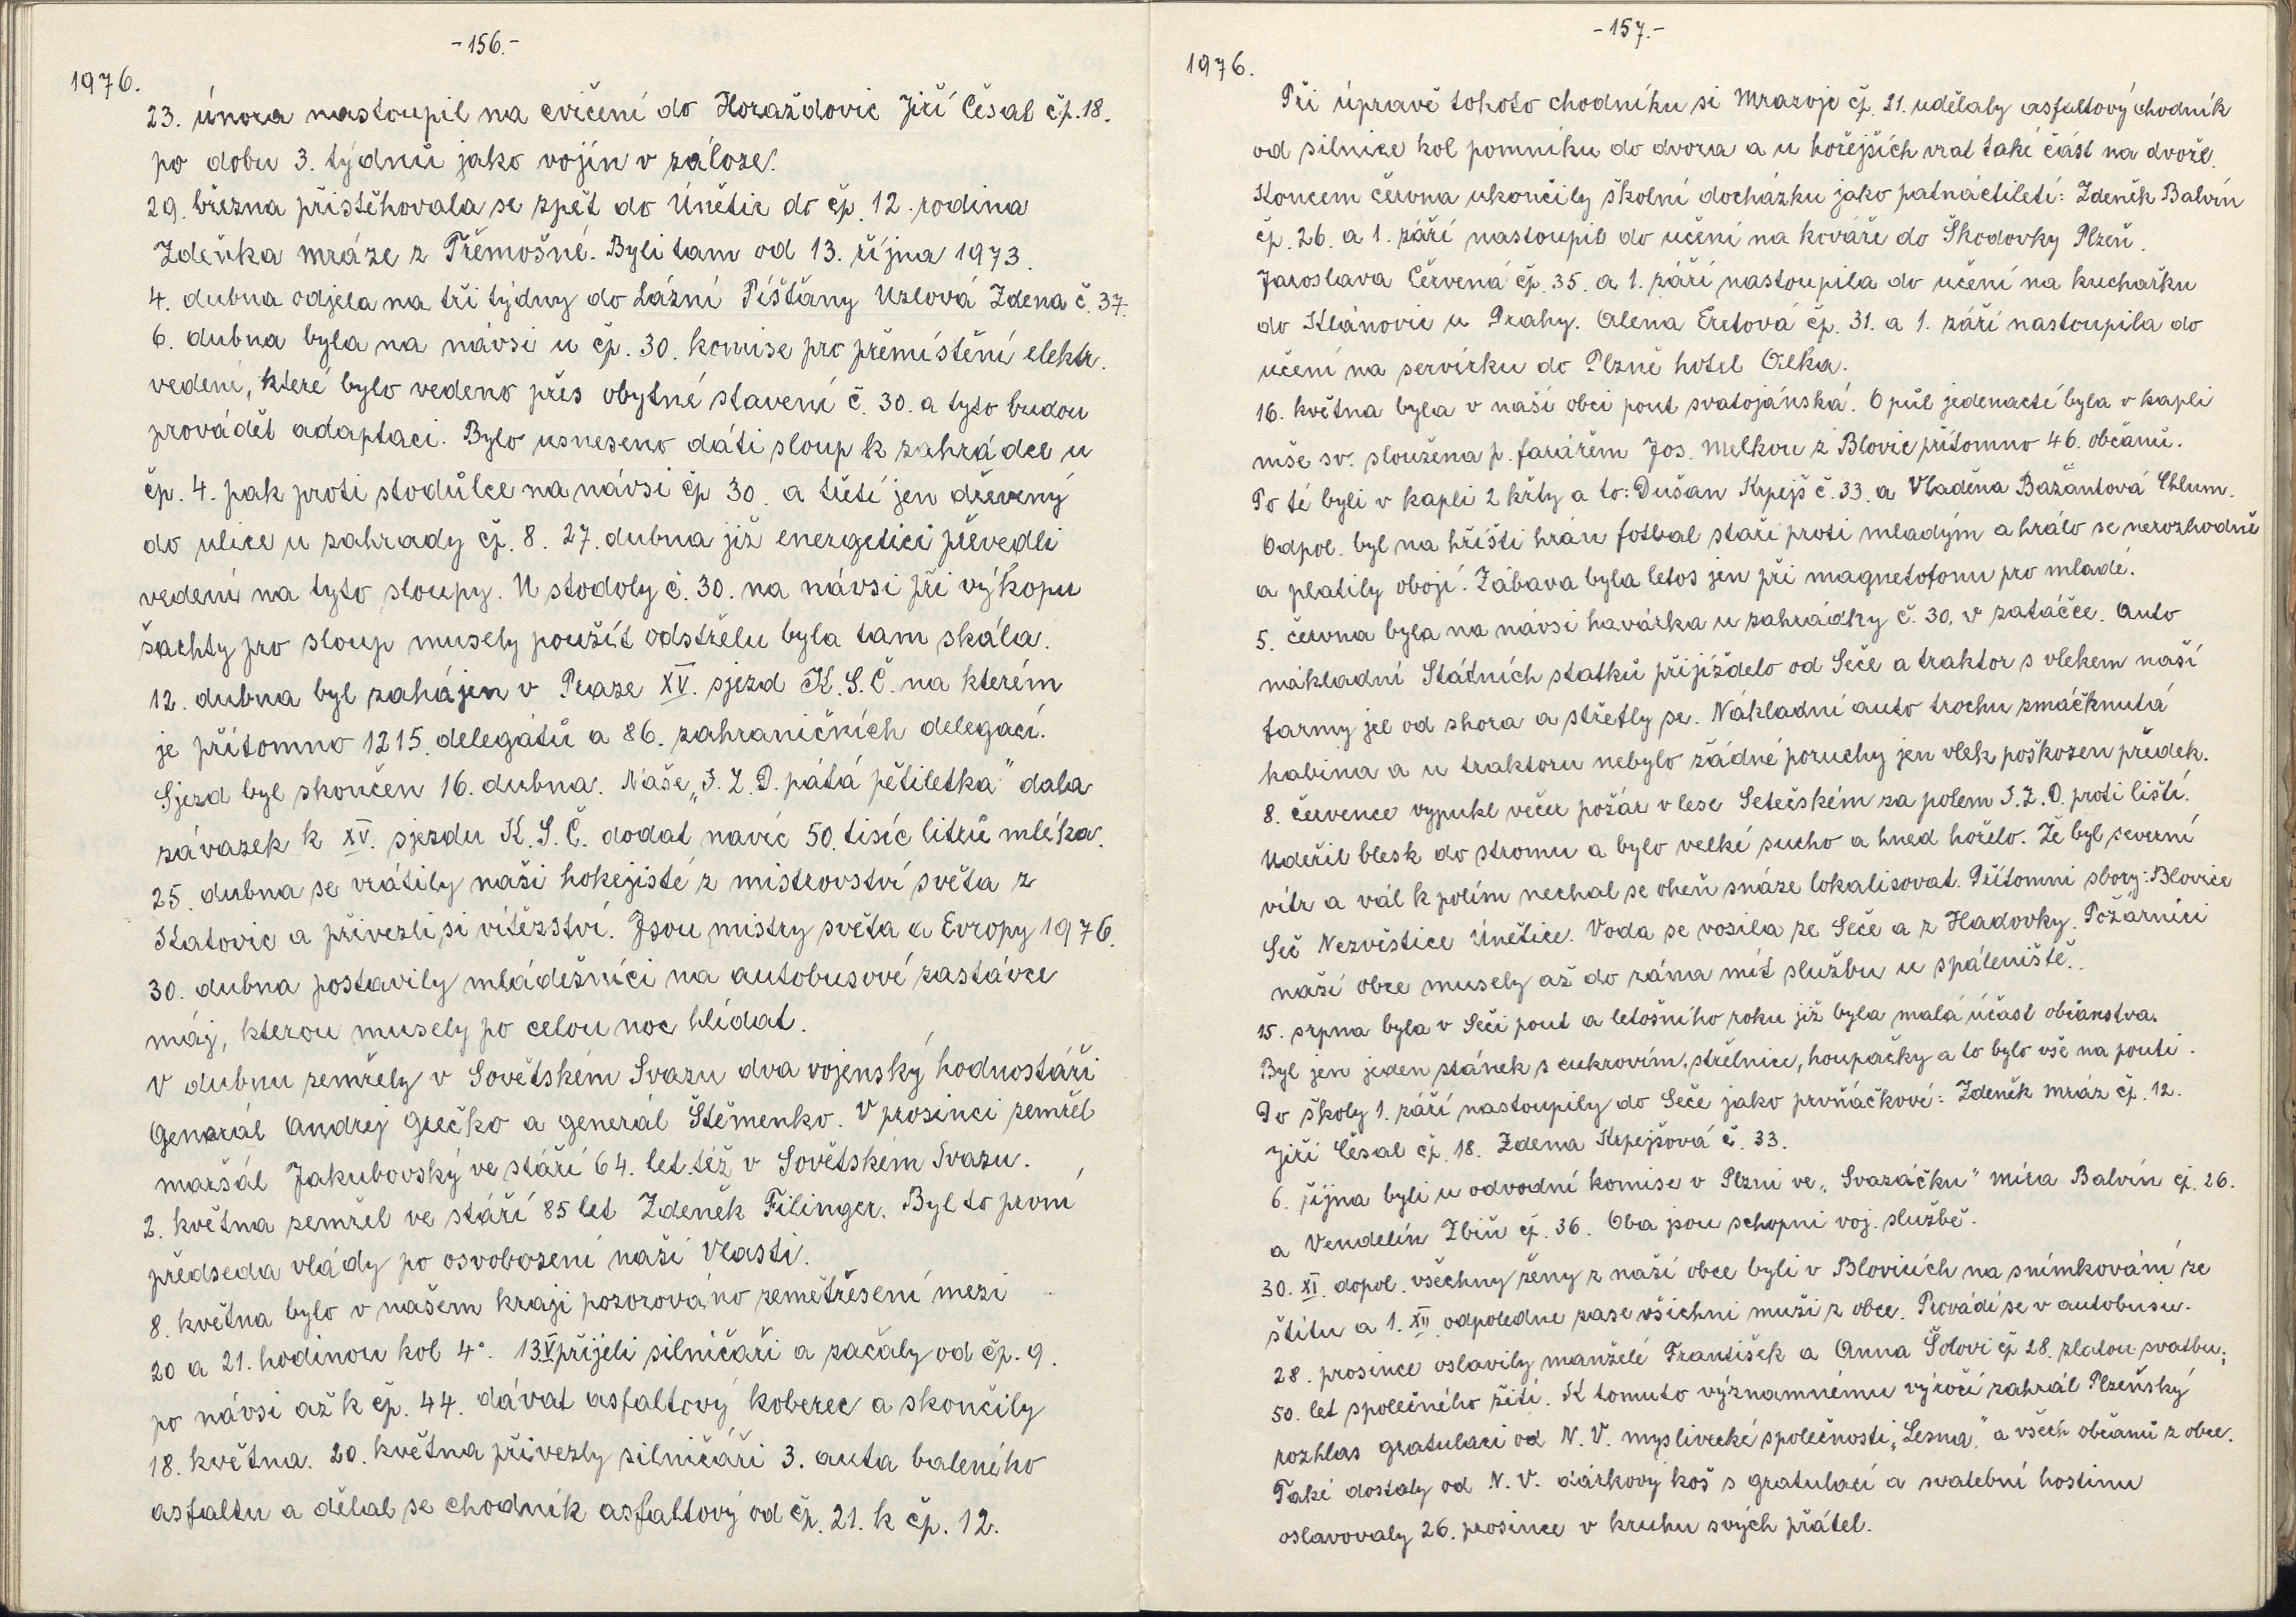 -156.-
1976.
23. února nastoupil na cvičení do Horažďovic Jiří Česal čp. 18.
po dobu 3. týdnů jako vojín v záloze.
29. března přistěhovala se zpět do Únětic do čp. 12. rodina
Zdeňka Mráze z Třemošné. Byli tam od 13. října 1973.
4. dubna odjela na tři týdny do Lázní Píšťany Uzlová Zdena č. 37.
6. dubna byla na návsi u čp. 30. komise pro přemístění elektr.
vedení, které bylo vedeno přes obytné stavení č. 30. a tyto budou
provádět adaptaci. Bylo usneseno dáti sloup k zahrádce u
čp. 4. pak proti stodůlce na návsi čp 30. a třetí jen dřevený
do ulice u zahrady čp. 8. 27. dubna již energetici převedli
vedení na tyto sloupy. U stodoly č. 30. na návsi při výkopu
šachty pro sloup musely použít odstřelu byla tam skála.
12. dubna byl zahájen v Praze XV. sjezd K.S.Č. na kterém
je přítomno 1215. delegátů a 86. zahraničních delegací.
Sjezd byl skončen 16. dubna. Naše „J.Z.D. pátá pětiletka" dala
závazek k XV. sjezdu K.S.Č. dodat navíc 50. tisíc litrů mléka.
25. dubna se vrátily naši hokejisté z mistrovství světa z
Katovic a přivezli si vítězství. Jsou mistry světa a Evropy 1976.
30. dubna postavily mládežníci na autobusové zastávce
máj, kterou musely po celou noc hlídat.
V dubnu zemřely v Sovětském Svazu dva vojenský hodnostáři
Generál Andrej Grečko a generál Štěmenko. V prosinci zemřel
maršál Jakubovský ve stáří 64. let též v Sovětském Svazu.
2. května zemřel ve stáří 85 let Zdeněk Filinger. Byl to první
předseda vlády po osvobození naší Vlasti.
8. května bylo v našem kraji pozorováno zemětřesení mezi
20 a 21. hodinou kol 4°. 13.V přijeli silničáři a začaly od čp. 9.
po návsi až k čp. 44. dávat asfaltový koberec a skončily
18. května. 20. května přivezly silničáři 3. auta baleného
asfaltu a dělal se chodník asfaltový od čp. 21. k čp. 12.
-157.-
1976.
Při úpravě tohoto chodníku si Mrazoje čp. 21. udělaly asfaltový chodník
od silnice kol pomníku do dvora a u hořejších vrat také část na dvoře.
Koncem června ukončily školní docházku jako patnáctiletí: Zdeněk Balvín
čp. 26. a 1. září nastoupil do učení na kováře do Škodovky Plzeň.
Jaroslava Červená čp. 35. a 1. září nastoupila do učení na kuchařku
do Klánovic u Prahy. Alena Eretová čp. 31. a 1. září nastoupila do
učení na servírku do Plzně hotel
16. května byla v naší obci pout svatojánská. O půl jedenactí byla v kapli
mše sv. sloužena p. farářem Jos. Melkou z Blovic přítomno 46. občanů.
Po té byli v kapli 2 křty a to: Dušan Krpejš č. 33. a Vladěna Bažantová Chlum.
Odpol. byl na hřišti hrán fotbal staří proti mladým a hrálo se nerozhodně
a platily obojí. Zábava byla letos jen při magnetofonu pro mladé.
5. června byla na návsi havárka u zahrádky č. 30. v zatáčce. Auto
nákladní Státních statků přijíždelo od Seče a traktor s vlekem naší
farmy jel od shora a střetly se. Nákladní auto trochu zmáčknutá
kabina a u traktoru nebylo žádné poruchy jen vlek poškozen předek.
8. července vypukl večer požár v lese Setečském za polem J.Z.D. proti lištί.
Udeřil blesk do stromu a bylo velké sucho a hned hořelo. Že byl severní
vítr a vál k polím nechal se oheň snáze lokalisovat. Přítomni sbory: Blovice
Seč Nezvěstice Únětice. Voda se vozila ze Seče a z Hadovky. Požárníci
naší obce musely až do rána mít službu u spáleniště.
15. srpna byla v Seči pout a letošního roku již byla malá účast občanstva.
Byl jen jeden stánek s cukrovím, střelnice, houpačky a to bylo vše na pouti.
Do školy 1. září nastoupily do Seče jako prvňáčkové: Zdeněk Mráz čp. 12.
Jiří Česal čp. 18. Zdena Krpejšová č. 33.
6. října byli u odvodní komise v Plzni ve „Svazáčku" Míra Balvín čp. 26.
a Vendelín Zbiň čp. 36. Oba jsou schopni voj. službě.
30. XI. dopol. všechny ženy z naší obce byli v Blovicích na snímkování ze
štítu a 1. XII. odpoledne zase všichni muži z obce. Provádí se v autobusu.
28. prosince oslavily manželé František a Anna Šolovi čp 28. zlatou svatbu,
50. let společného žití. K tomuto významnému výročí zahrál Plzeňský
rozhlas gratulaci od N.V. myslivecké společnosti „Lesná" a všech občanů z obce.
Také dostaly od N.V. dárkový koš s gratulací a svatební hostinu
oslavovaly 26. prosince v kruhu svých přátel.